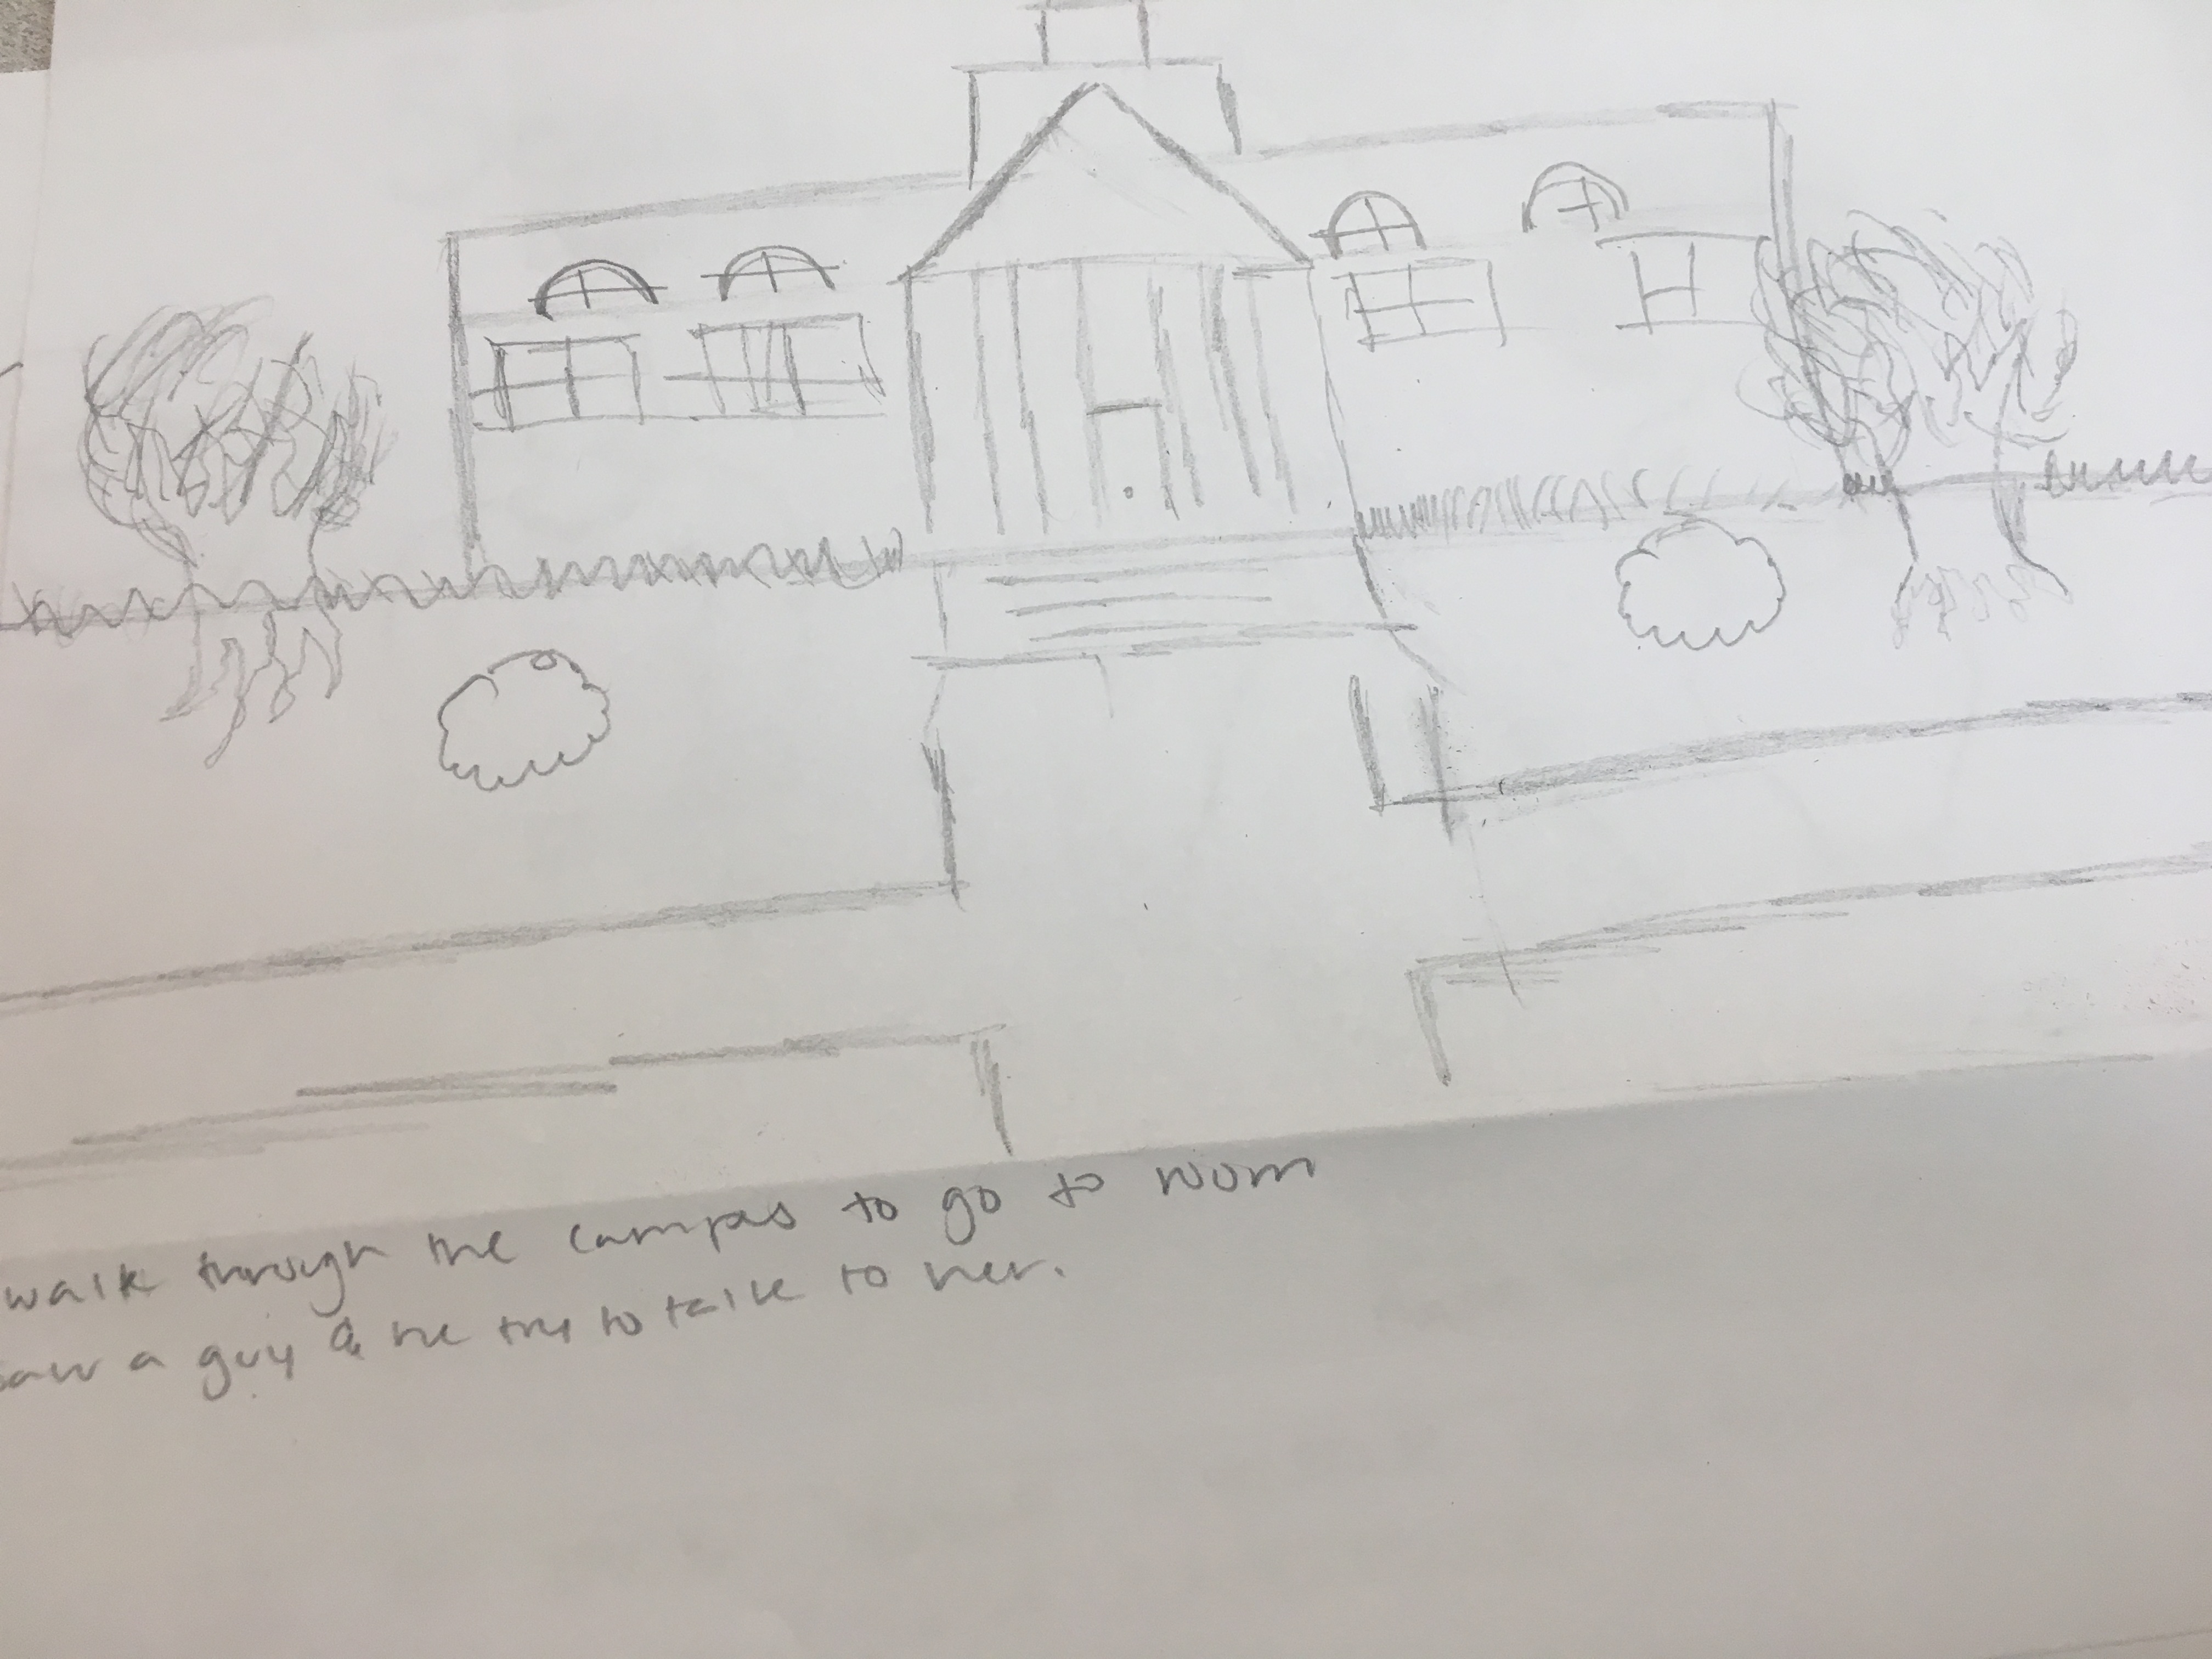 walk through the campus to go to room
saw a guy & he try to talk to her.